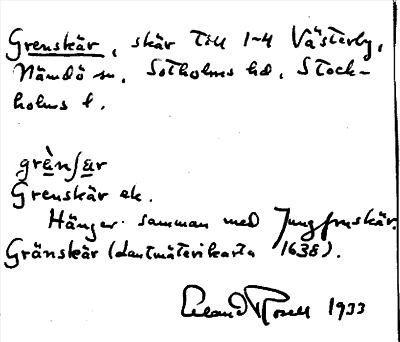 Grenskär, skär till 1-4 Västerby,
Nämdö sn, Sotholms hd, Stock-
holms l.
grè̱nʃa̱r
Grenskär ek.
Hänger samman med Jungfruskär.
Gränskär (lantmäterikarta 1638).
Erland Rosell 1933